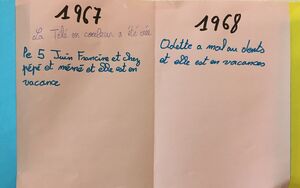 1967
La Télé en couleur a été crée
le 5 Juin Francine et chez
pépé et mémé et elle est en
vacance
1968
Odette a mal au dents
et elle est en vacances